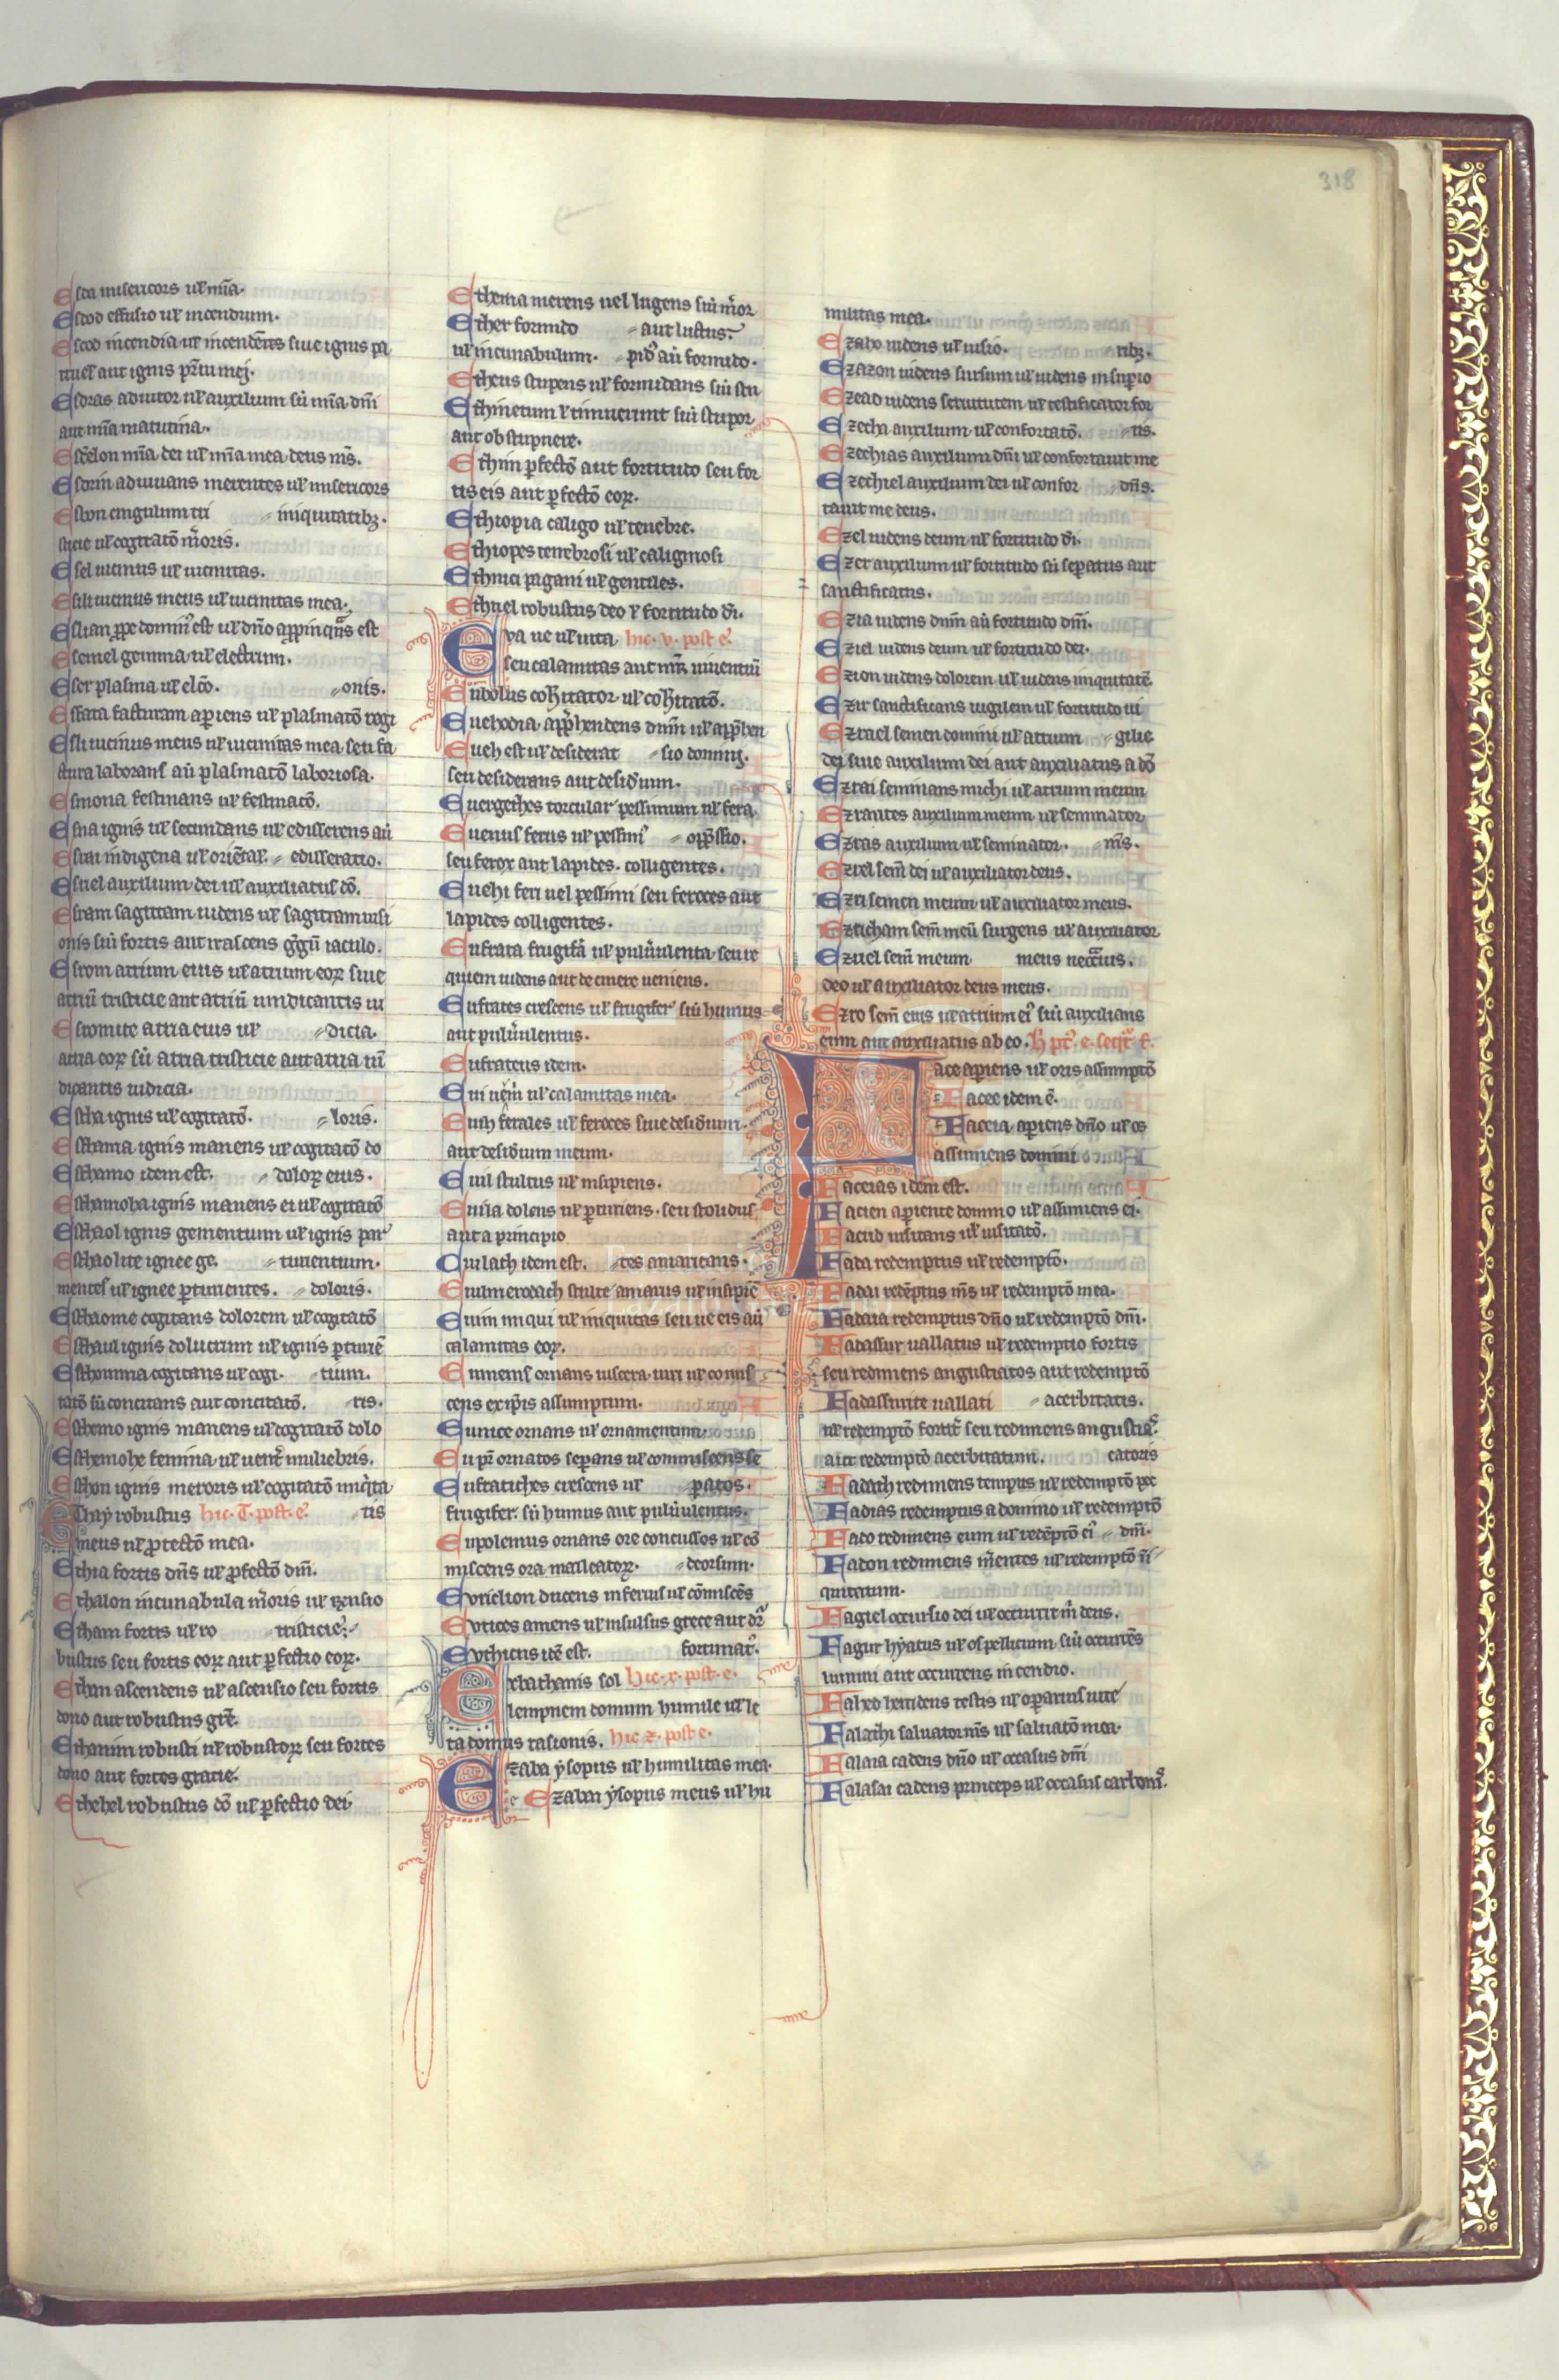 318
Esta misericors uł mīa.
Estod effusio uł incendium.
Estod incendia uł incendētes siue ignis pa
truel' aut ignis pr̄iu mei.
Esdras adiutor uł auxilium sū mīa dn̄i
aut mīa matutina.
Esdrelon mīa dei uł mīa mea deus m̄s.
Esdrin adiuuans merentes uł misericors
Esebon cingulum tri iniquitatibꝫ.
sticie uł cogitatō m̄oris.
Esel uicinus uł uicinitas.
Eseli uicinus meus uł uicinitas mea.
Eselian ꝓpe domin' est uł dn̄o appinqn̄s est
Esemel gemma uł electrum.
Eser plasma uł elcō. onis.
Esfata facturam apiens uł plasmatō rogi
Esli uicinus meus uł uicinitas mea seu fa
ctura laborans aū plasmatō laboriosa.
Esmona festinans uł festinatō.
Esna ignis uł secundans uł edisserens aū
Esnai indigena uł oriētal'. edisseratio.
Esuel auxilium dei uł auxiliatus dō.
Esram sagittam uidens uł sagittam uisi
onis siū fortis aut irascens g̊gū iaculo.
Esrom atrium eius uł atrium eoꝝ siue
atriū tristicie aut atriū uindicantis iu
Esromite atria eius uł dicia.
atria eoꝝ sū atria tristicie aut atria uī
dicantis iudicia.
Estha ignis uł cogitatō. loris.
Esthama ignis manens uł cogitatō do
Esthamo idem est. doloꝝ eius.
Esthamoha ignis manens ei uł cogitatō
Esthaol ignis gementium uł ignis par
Esthaolite ignee ge. turientium.
mentes uł ignee ꝑturientes. doloris.
Esthaome cogitans dolorem uł cogitatō
Esthaul ignis dolutium uł ignis ꝑturiē
Esthomma cogitans uł cogi. tium.
tatō sū concitans aut concitatō. ris.
Esthemo ignis manens uł cogitatō dolo
Esthemohe femina uł uent̄ muliebris.
Esthon ignis meroris uł cogitatō iniq̄ta
Ethay robustus hic .T. post .e. tis
meus uł ꝓtectō mea.
Ethia fortis dn̄s uł ꝓfectō dn̄i.
Ethalon incunabula m̄oris uł
Etham fortis uł ro tristicie.
bustus seu fortis eoꝝ aut ꝑfectio eoꝝ.
Ethan ascendens uł ascensio seu fortis
dono aut robustus grē.
Ethanim robusti uł robustoꝝ seu fortes
dono aut fortes gracie.
Ethebel robustus dō uł ꝑfectio dei
Ethema merens uel lugens siū m̄or
Ether formido aut luctus.
uł incunabulum. aū formido.
Etheus stupens uł formidans siū stu
Ethinetum ł timuerunt siū stupor
aut obstupuere.
Ethim ꝑfectō aut fortitudo seu for
tis eis aut ꝑfectō eoꝝ.
Ethiopia caligo uł tenebre.
Ethiopes tenebrosi uł caliginosi
Ethnici pagani uł gentiles.
Ethuel robustus deo ł fortitudo di.
Eva ue uł uita hic .v. post e.
seu calamitas aut mr̄ uiuentiū
Eubolus coħitator uł coħitatō.
Euehodia appħendens dnm̄ uł appħen
Eueh est uł desiderat sio domini.
seu desiderans aut desidium.
Euergethes torcular pessimum uł fera
Eueuis ferus uł pessimi oppssio.
seu ferox aut lapides colligentes.
Euehi feri uel pessimi seu feroces aut
lapides colligentes.
Eufrata frugifa uł puluilenta seu re
quiem uidens aut de cinere ueniens.
Eufrates crescens uł frugifer siū humus
aut puluilentus.
Eufrateus idem.
Eui uēni uł calamitas mea.
Euy ferales uł feroces siue desidium
aut desidium meum.
Euil stultus uł insipiens.
Euila dolens uł ꝑturiens seu stolidus
aut a principio
Euilath idem est. tes amaricans.
Euilmerodach stulte amarus uł insipiē
Euim iniqui uł iniquitas seu ue eis aū
calamitas eoꝝ.
Eumenis ornans uiscera uiri uł comis
cens expris assumptum.
Eunice ornans uł ornamentum.
Eupr̄ ornatos sepans uł commiscens se
Eufratiches crescens uł patos.
frugifer siū humus aut puluilentus.
Eupolemus ornans ore concussos uł cō
miscens ora malleatoꝝ. deorsum.
Evriclion ducens inferius uł cōmiscēs
Evtices amens uł insulsus grece aut dr̄
Evthicus idē est. fortunat'.
Exbathanis sol hic .x. post e.
lempnem domum humile uł le
ta domus rasionis. hic .z. post e.
Ezaba ysopus uł humilitas mea.
Ezabai ysopus meus uł hu
militas mea.
Ezabo uidens uł uisio. ribꝫ.
Ezazon uidens sursum uł uidens in supio
Ezead uidens seruitutem uł testificator for
Ezecha auxilium uł confortatō. tis.
Ezechias auxilium dn̄i uł confortauit me
Ezechiel auxilium dei uł confor dn̄s.
tauit me deus.
Ezel uidens deum uł fortitudo di.
Ezer auxilium uł fortitudo sū sepatus aut
sanctificatus.
Ezia uidens dnm̄ aū fortitudo dn̄i.
Eziel uidens deum uł fortitudo dei.
Ezion uidens dolorem uł uidens iniquitatē
Ezir sanctificans uigilem uł fortitudo ui
Ezrael semen domini uł atrium gilie
dei siue auxilium dei aut auxiliatus a dō
Ezrai seminans michi uł atrium meum
Ezraites auxilium meum uł seminator
Ezras auxilium uł seminator. m̄s.
Ezrel sem̄ dei uł auxiliator deus.
Ezri semen meum uł auxiliator meus.
Ezricham sem̄ meū surgens uł auxiliator
Ezriel sem̄ meum meus
deo uł auxiliator deus meus.
Ezro sem̄ eius uł atrium ei' siū auxilians
eum aut auxiliatus ab eo.
Face apiens uł oris assumptō
Facee idem ē.
Faceia apiens dn̄o uł os
assumens domini
Faceias idem est.
Facien apiente domino uł assumens ei.
Facud uisitans uł uisitatō.
Fada redemptus uł redemptō.
Fadai redēptus m̄s uł redemptō mea.
Fadaia redemptus dn̄o uł redemptō dn̄i.
Fadassur uallatus uł redemptio fortis
seu redimens angustiatos aut redemptō
Fadassurite uallati acerbitatis.
uł redemptō fortit̄ seu redimens angustia
aut redemptō acerbitatum. catoris
Fadath redimens tempus uł redemptō pec
Fadias redemptus a domino uł redemptō
Fado redimens eum uł redēptō ei' dn̄i.
Fadon redimens m̄entes uł redemptō ī
quitatum.
Fagiel occursio dei uł occurrit m̄ deus.
Fagur hyatus uł os pellicium siū occurrēs
lumini aut occurrens incendio.
Falathi saluator m̄s uł saluatō mea.
Falaia cadens dn̄o uł occasus dn̄i
Falasai cadens princeps uł occasus